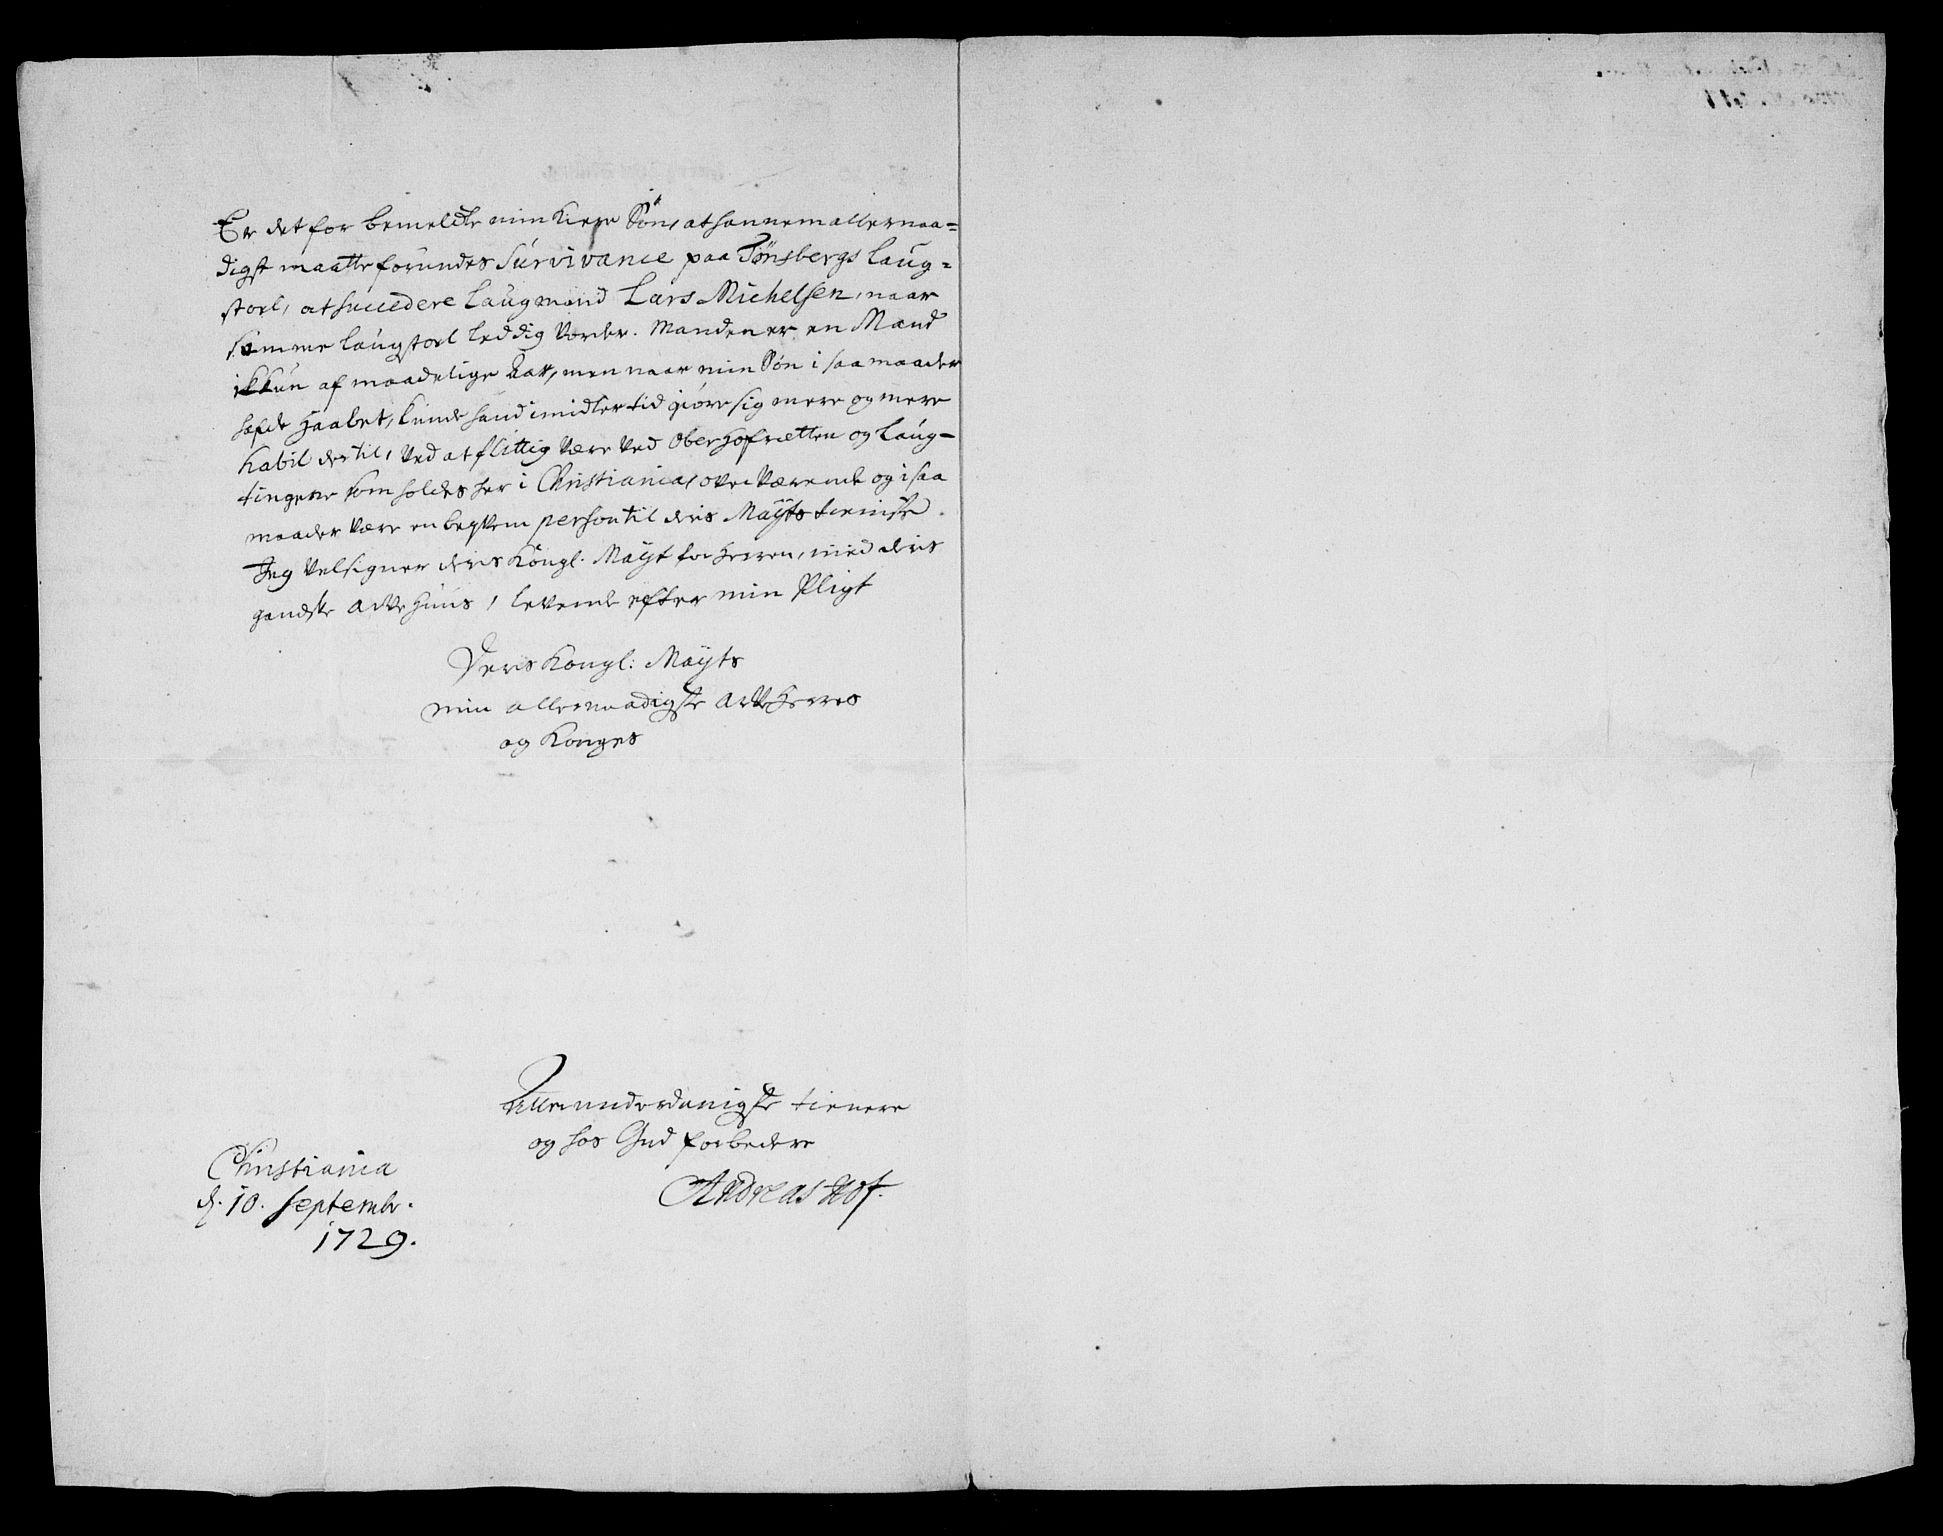 Er det for bemelte min kiere Søn, at hannem allernaa=
digst maatte forundes Survivance paa Tønsbergs Laug=
stoel, at succedere Laugmand Lars Michelsen, naar
samme Laugstoel leddig vorder. Manden er en Mand
ikkun af maadelige Aar, men naar min Søn i saa maader
hafde Haabet, kunde hand imidlertid giøre sig mere og mere
habil dertil, ved at flittig være ved Oberhofretten og Laug-
tingene som holdes her i Christiania, overværende og i saa
maader være en beqvem person til deris Mayts tieniste.
Jeg velsigner deris Kongl. Mayt for Herren, med deris
gandske Arve Huus, levende efter min Pligt
Deris Kongl: Mayts
min allernaadigste Arve Herres
og Konges
Allerunderdanigste tienere
og hos Gud forbedere
Andreas Hof.
Christiania
d. 10. Septembr.
1729.